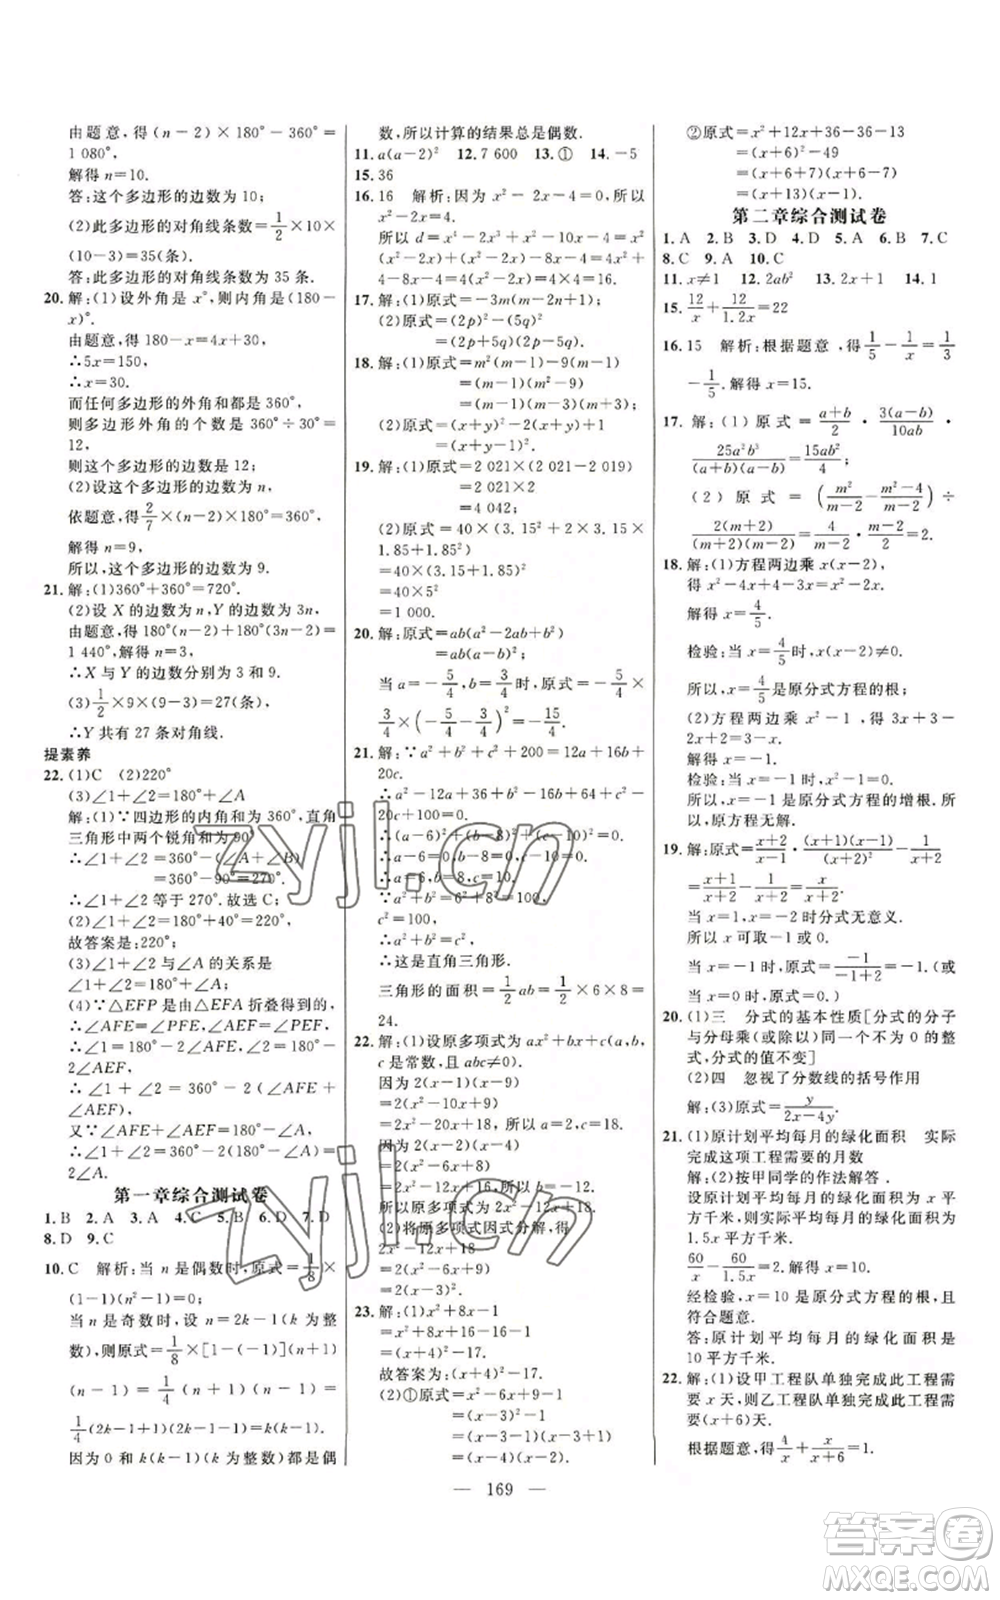 由题意，得(n－2)×180°－360°＝
1 080°.
解得 n＝10.
答：这个多边形的边数为 10；
(2)此多边形的对角线条数＝1/2×10×
(10－3)＝35(条).
答：此多边形的对角线条数为 35 条.
20. 解：(1)设外角是 x°，则内角是(180－
x)°.
由题意，得 180－x＝4x＋30，
∴5x＝150，
∴x＝30.
而任何多边形的外角和都是 360°，
则多边形外角的个数是 360°÷30°＝
12，
则这个多边形的边数是 12；
(2)设这个多边形的边数为 n，
依题意，得 2/7×(n－2)×180°＝360°，
解得 n＝9.
所以，这个多边形的边数为 9.
21. 解：(1)360°＋360°＝720°.
(2)设 X 的边数为 n，Y 的边数为 3n，
由题意，得 180°(n－2)＋180°(3n－2)＝
1 440°，解得 n＝3，
∴X 与 Y 的边数分别为 3 和 9.
(3)1/2×9×(9－3)＝27(条)，
∴Y 共有 27 条对角线.
提素养
22. (1)C (2)220°
(3)∠1＋∠2＝180°＋∠A
解：(1)∵四边形的内角和为 360°，直角
三角形中两个锐角和为 90°
∴∠1＋∠2＝360°－(∠A＋∠B)
＝360°－90°＝270°.
∴∠1＋∠2 等于 270°. 故选 C；
(2)∠1＋∠2＝180°＋40°＝220°，
故答案是：220°；
(3)∠1＋∠2 与∠A 的关系是
∠1＋∠2＝180°＋∠A；
(4)∵△EFP 是由△EFA 折叠得到的，
∴∠AFE＝∠PFE，∠AEF＝∠PEF，
∴∠1＝180°－2∠AFE，∠2＝180°－
2∠AEF，
∴∠1＋∠2＝360°－2(∠AFE＋
∠AEF)
又∵∠AFE＋∠AEF＝180°－∠A，
∴∠1＋∠2＝360°－2(180°－∠A)＝
2∠A.
第一章综合测试卷
1. B 2. A 3. A 4. C 5. B 6. D 7. D
8. D 9. C
10. C 解析：当 n 是偶数时，原式＝1/8×
(1－1)(n²－1)＝0；
当 n 是奇数时，设 n＝2k－1(k 是整
数)，原式＝1/8×[1－(－1)](n＋1)
(n－1)＝1/4(n＋1)(n－1)＝
1/4(2k－1＋1)(2k－1－1)＝k(k－1)
因为 0 和 k(k－1)(k 为整数)都是偶
数，所以计算的结果总是偶数.
11. a(a－2)² 12. 7 600 13. ① 14. －5
15. 36
16. 16 解析：因为 x²－2x－4＝0，所以
x²－2x＝4.
所以 d＝x⁴－2x³＋x²－2x³－
4x²＋8x－4＝x²(x²－2x)－2x³＋
4－8x－4＝4(x²－2x)＝4×4＝16.
17. 解：(1)原式＝－3m(m－2n＋1)；
(2)原式＝(2p)²－(5q)²
＝(2p＋5q)(2p－5q)
18. 解：(1)原式＝m²(m－1)－9(m－1)
＝(m－1)(m²－9)
＝(m－1)(m＋3)(m－3)；
(2)原式＝(x＋y)²－2(x＋y)＋1
＝(x＋y－1)².
19. 解：(1)原式＝2 021×(2 021－2 019)
＝2 021×2
＝4 042；
(2)原式＝40×(3. 15²＋2×3. 15×
1. 85＋1. 85²)
＝40×(3. 15＋1. 85)²
＝40×5²
＝1 000.
20. 解：原式＝ab(a²－2ab＋b²)
＝ab(a－b)²；
当 a＝－5/4，b＝3/4时，原式＝－5/4×
3/4×(－5/4－3/4)²＝－15/4.
21. 解：∵a²＋b²＋c²＋200＝12a＋16b＋
20c.
∴a²－12a＋36＋b²－16b＋64＋c²－
20c＋100＝0，
∴(a－6)²＋(b－8)²＋(c－10)²＝0，
∴a－6＝0，b－8＝0，c－10＝0，
∴a＝6，b＝8，c＝10，
∵a²＋b²＝6²＋8²＝100，
c²＝100，
∴a²＋b²＝c²，
∴这是直角三角形.
三角形的面积＝1/2ab＝1/2×6×8＝
24.
22. 解：(1)设原多项式为 ax²＋bx＋c(a，b，
c 是常数，且 abc≠0)
因为 2(x－1)(x－9)
＝2(x²－10x＋9)
＝2x²－20x＋18，所以 a＝2，c＝18，
因为 2(x－2)(x－4)
＝2(x²－6x＋8)
＝2x²－12x＋16，所以 b＝－12.
所以原多项式为 2x²－12x＋18；
(2)将原多项式因式分解，得
2x²－12x＋18
＝2(x²－6x＋9)
＝2(x－3)².
23. 解：(1)x²＋8x－1
＝x²＋8x＋16－16－1
＝(x＋4)²－17.
故答案为：(x＋4)²－17；
(2)①原式＝x²－2x＋1－1－3
＝(x－1)²－4
＝(x－1＋3)(x－1－3)
＝(x＋2)(x－2).
②原式＝x²＋12x＋36－36－13
＝(x＋6)²－49
＝(x＋6＋7)(x＋6－7)
＝(x＋13)(x－1).
第二章综合测试卷
1. A 2. B 3. D 4. D 5. A 6. B 7. C
8. C 9. A 10. C
11. x≠1 12. 2ab² 13. 2x－1 14. 1
15. 12/x＋12/1.2x＝22
16. 15 解析：根据题意，得1/5－1/x＝1/3
－1/5. 解得 x＝15.
17. 解：(1)原式＝(a＋b)/2·3(a－b)/10ab·
25a²b³/(a＋b)(a－b)＝15ab²/4；
(2)原式＝(m²/(m－2)－(m²－4)/(m－2))÷
2(m＋2)/(m＋2)(m－2)＝4/(m－2)·(m－2)/2＝2.
18. 解：(1)方程两边乘 x(x－2)，
得 x²－4x＋4＝x²＋x，
解得 x＝4/5.
检验：当 x＝4/5时，x(x－2)≠0.
所以，x＝4/5是原分式方程的根；
(2)方程两边乘 x²－1，得 2(x－
1)＋3(x＋1)＝x＋3.
解得 x＝－1.
检验：当 x＝－1 时，x²－1＝0.
所以，x＝－1 是原分式方程的增根.
所以，原方程无解.
19. 解：原式＝(x＋2)/(x－1)·(x＋1)(x－1)/(x＋2)²－1/(x＋2)
＝(x＋1)/(x＋2)－1/(x＋2)＝x/(x＋2)
当 x＝1 时，分式无意义.
所以 x 可取－1 或 0.
当 x＝－1 时，原式＝－1/(－1＋2)＝－1；
当 x＝0 时，原式＝0.
20. (1)三 分式的基本性质[分式的分子
与分母乘(或除以)同一个不为 0 的整
式，分式的值不变]
(2)四 忽视了分数线的括号作用
解：(3)原式＝y/(2x－4y).
21. (1)原计划平均每月的绿化面积 实际
完成这项工程需要的月数
(2)按照甲同学的作法解答.
设原计划平均每月的绿化面积为 x 平
方千米，则实际平均每月的绿化面积是
1. 5x 平方千米.
60/x－60/1.5x＝2，解得 x＝10.
经检验，x＝10 是原分式方程的根，且
符合题意.
答：原计划平均每月的绿化面积是
10 平方千米.
22. 解：(1)设甲工程队单独完成此工程需
要 x 天，则乙工程队单独完成此工程需
要(x＋6)天.
根据题意，得4/x＋x/(x＋6)＝1.
— 169 —
zyjl.cn
zyjl.cn
答案圈
MXQE.COM